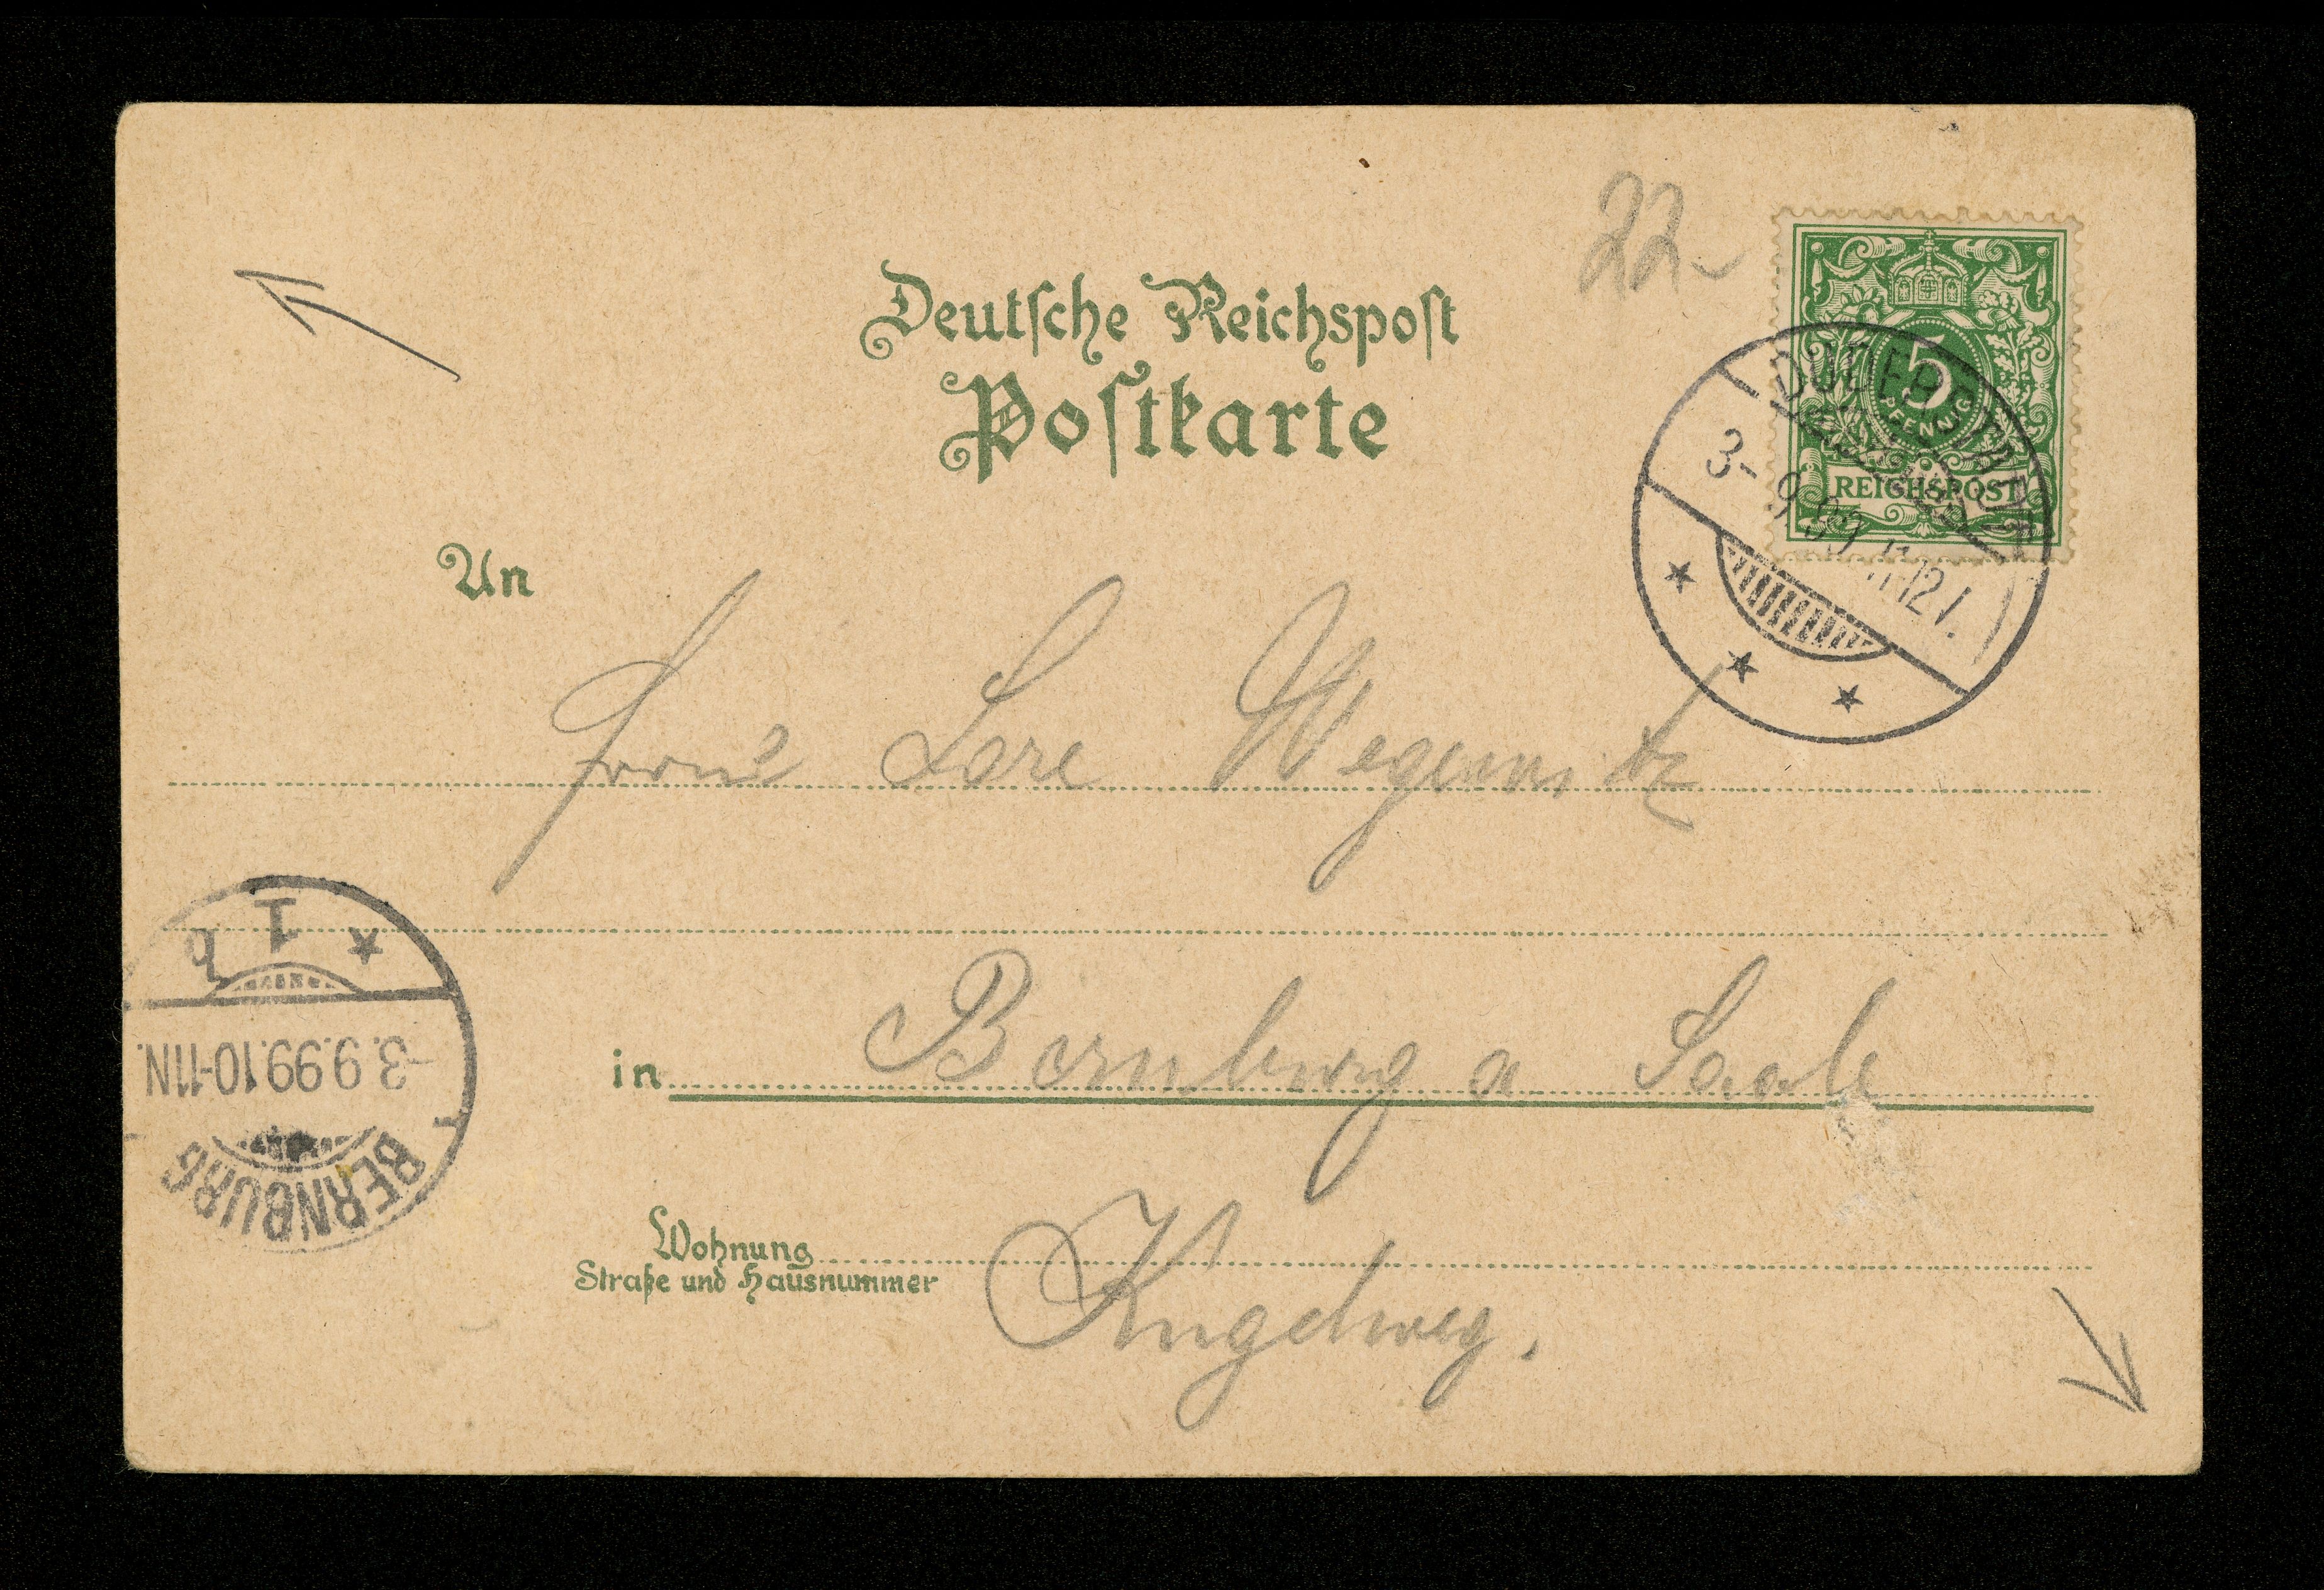 22.
Deutsche Reichspost
Postkarte
5
PFENNIG
REICHSPOST
DUDERSTADT
3-9.99 11-12 V.
An
Lore
in Bernburg a Saale
1 b
-3.9.99.10-11N.
BERNBURG
Wohnung
Straße und Hausnummer
Kugelweg.